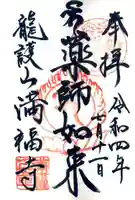 奉拝
令和四年
七月十二日
薬師如来
龍護山満福寺